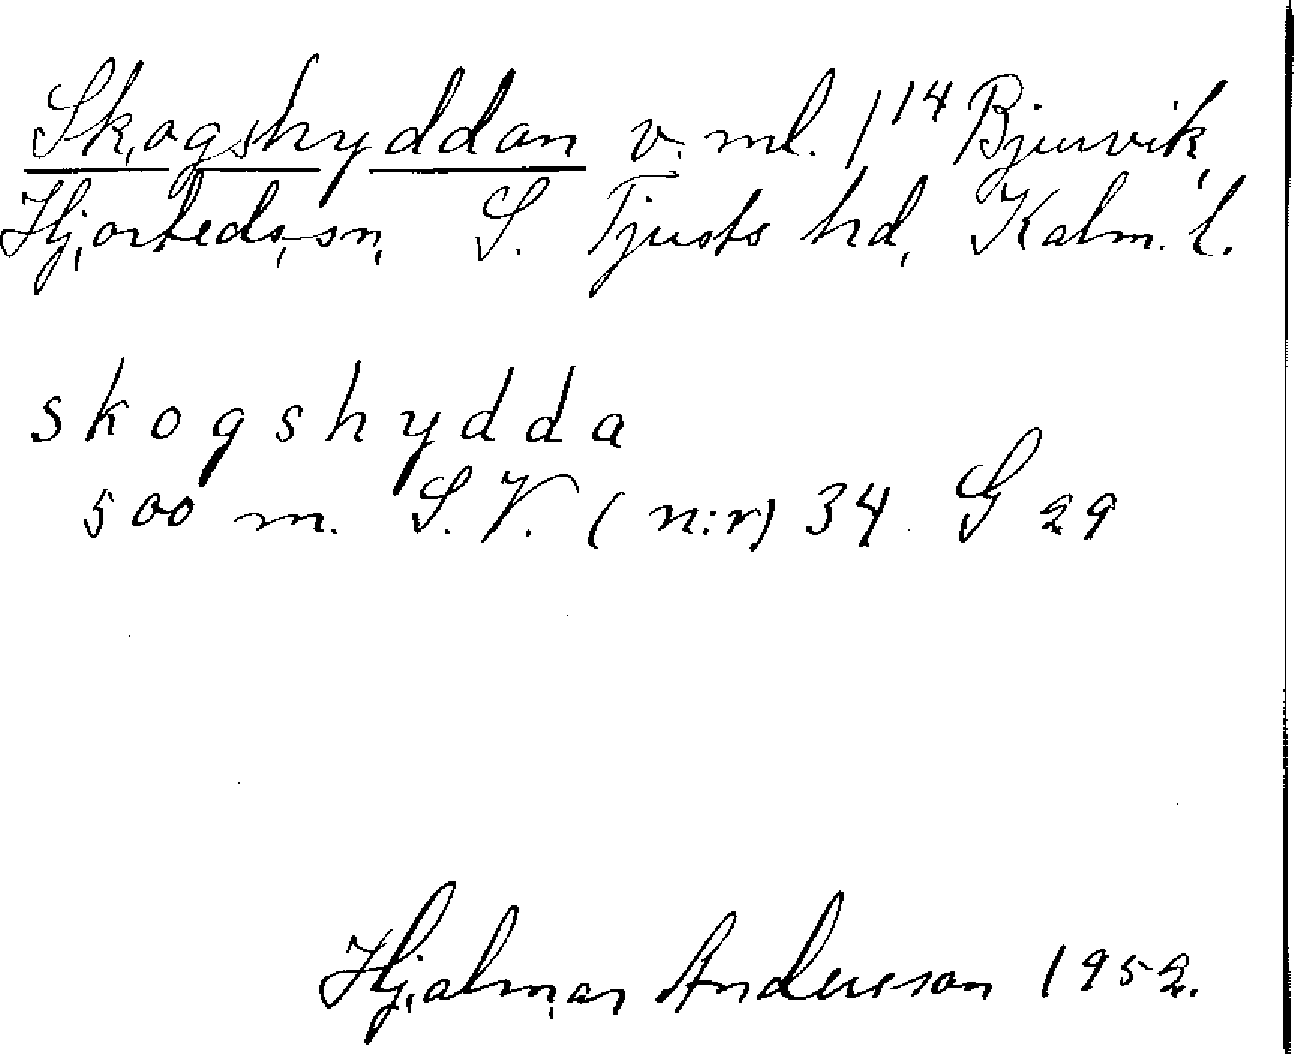 Skogshyddan v. ml. 1¹⁴ Bjurvik,
Hjorteds sn, S. Tjusts hd, Kalm. l.
skogshydda
500 m. S.V. (n:r) 34. G 29
Hjalmar Andersson 1952.